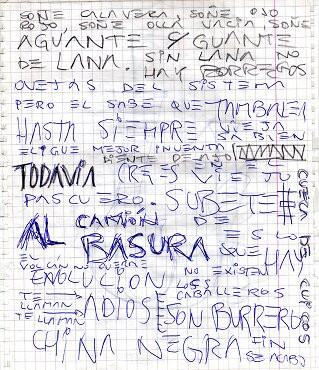 SOÑE CALAVERA, SOÑE OJO
ROJO, SOÑE OLLA VACIA, SOÑE
AGUANTE Y GUANTE
DE LANA. SIN LANA NO
HAY BORREGOS
OVEJAS DEL SISTEMA
PERO EL SABE QUE TAMBALEA
HASTA SIEMPRE VIEJA
SABIEN
EL QUE MEJOR INVENTA
DIENTE DE AJO
TODAVIA CREES VIEJU
PASCUERO. SUBETE
AL CAMION DE
BASURA ES LO
QUE HAY
EL VOLCAN NO QUERRA
EVOLUCION NO EXISTEN
LOSS CABALLEROS
TE LLAMAN ADIOS SON BURREROS
TE LLAMAN
CHINA NEGRA FIN
SE ACABO
CUECA DE CUICOS